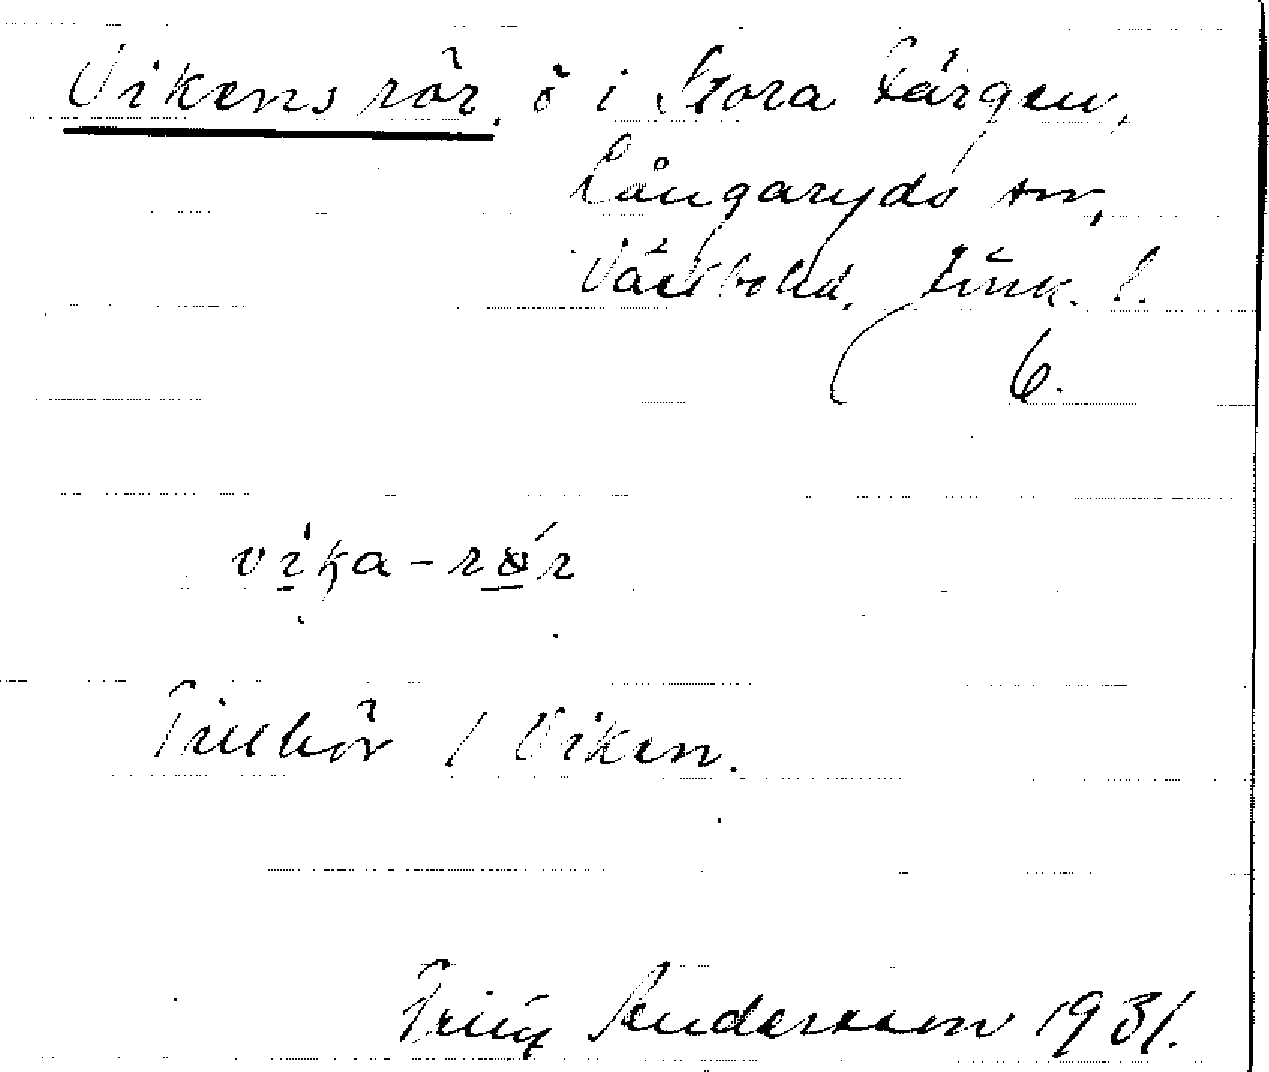 Vikens rör. ö i Stora Färgen,
Långaryds sn,
Västbo hd, Jönk. l.
6.
vika - rør
Tillhör / Viken.
Fritz Andersson 1931.